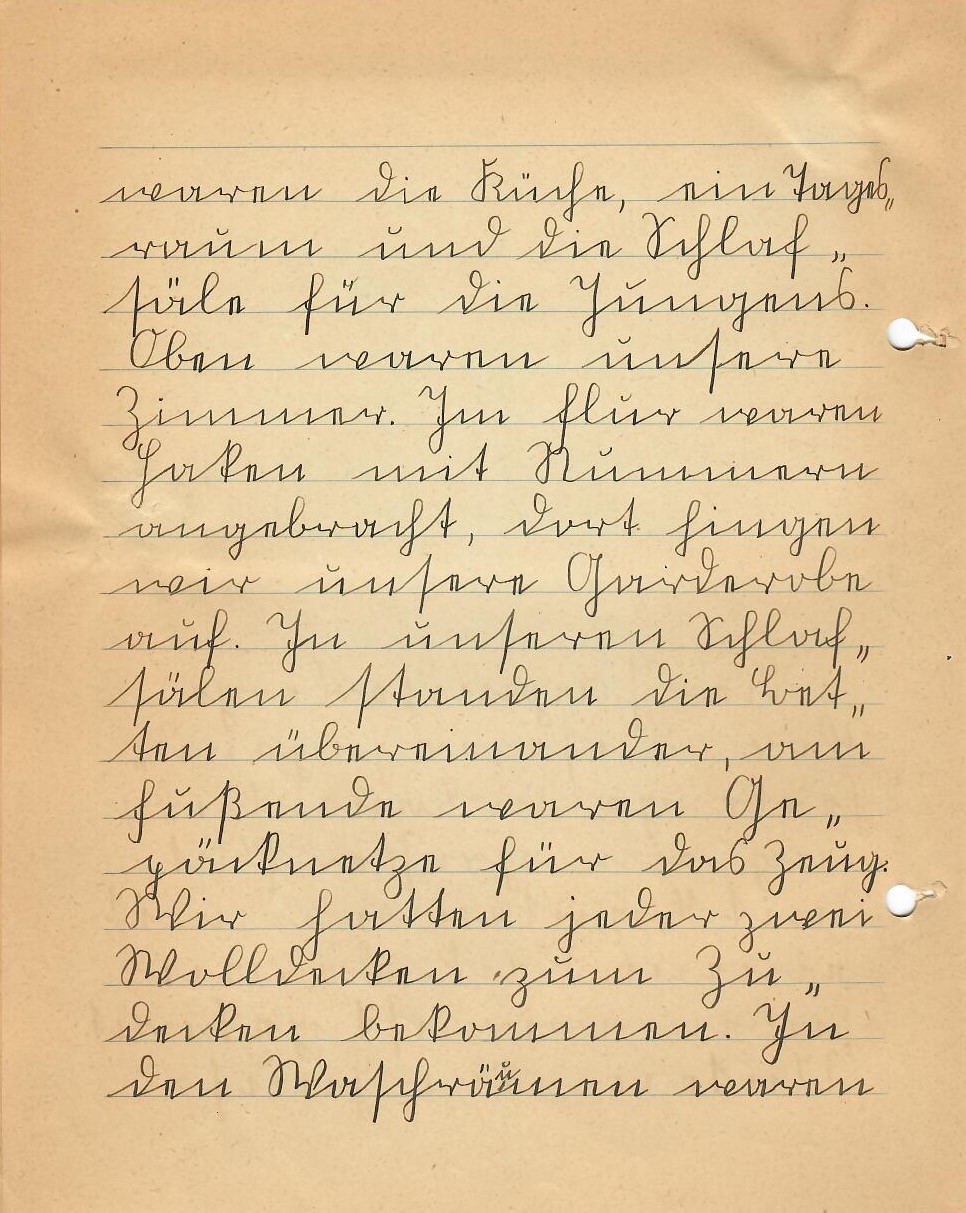 waren die Küche, ein Tages„
raum und die Schlaf„
säle für die Jungens.
Oben waren unsere
Zimmer. Im Flur waren
Haken mit Nummern
angebracht, dort hingen
wir unsere Garderobe
auf. In unseren Schlaf„
sälen standen die Bet„
ten übereinander, am
Fußende waren Ge„
päcknetze für das Zeug.
Wir hatten jeder zwei
Wolldecken zum Zu„
decken bekommen. In
den Waschräumen waren